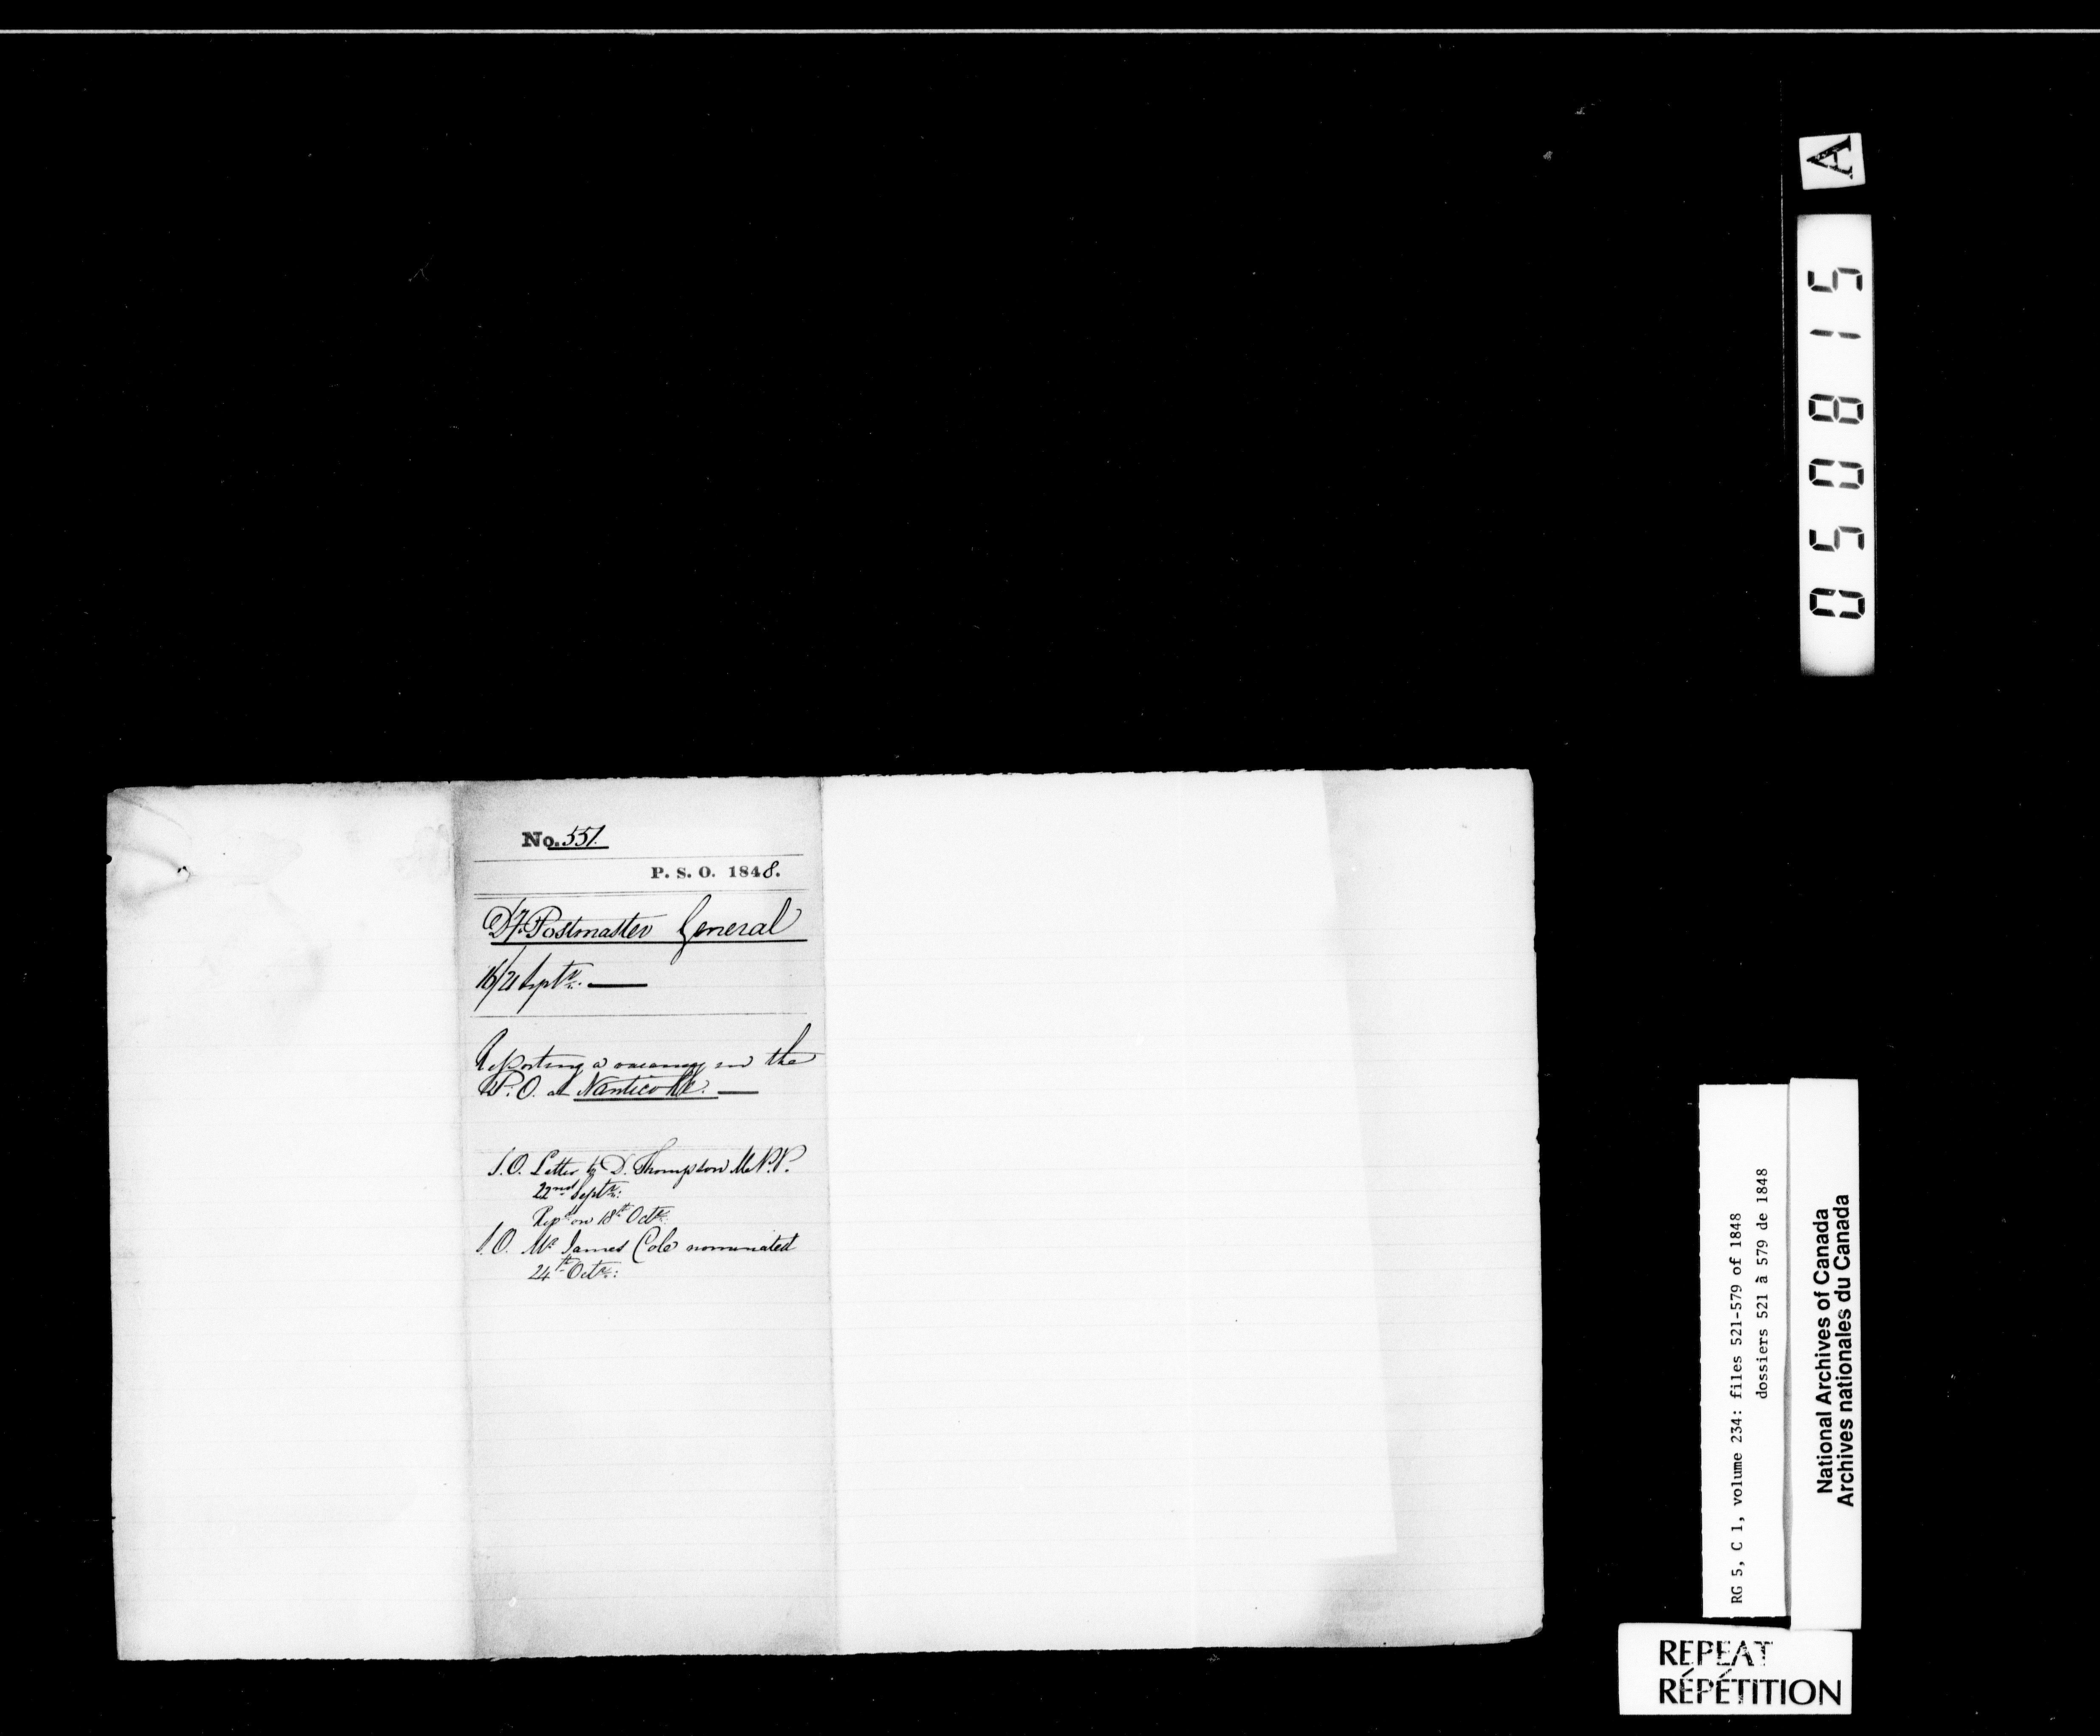 No. 551.
P. S. O. 1848.
Dy. Postmaster General
16/21 Septr. —
Reporting a vacancy in the
P. O. at Nanticoke. —
S.O. Letter to D. Thompson M.P.P.
22nd Septr:
Repd on 18th Octr.
S.O. Mr James Cole nominated
24th Octr:
A
050815
RG 5, C 1, volume 234: files 521-579 of 1848
dossiers 521 à 579 de 1848
National Archives of Canada
Archives nationales du Canada
REPEAT
RÉPÉTITION